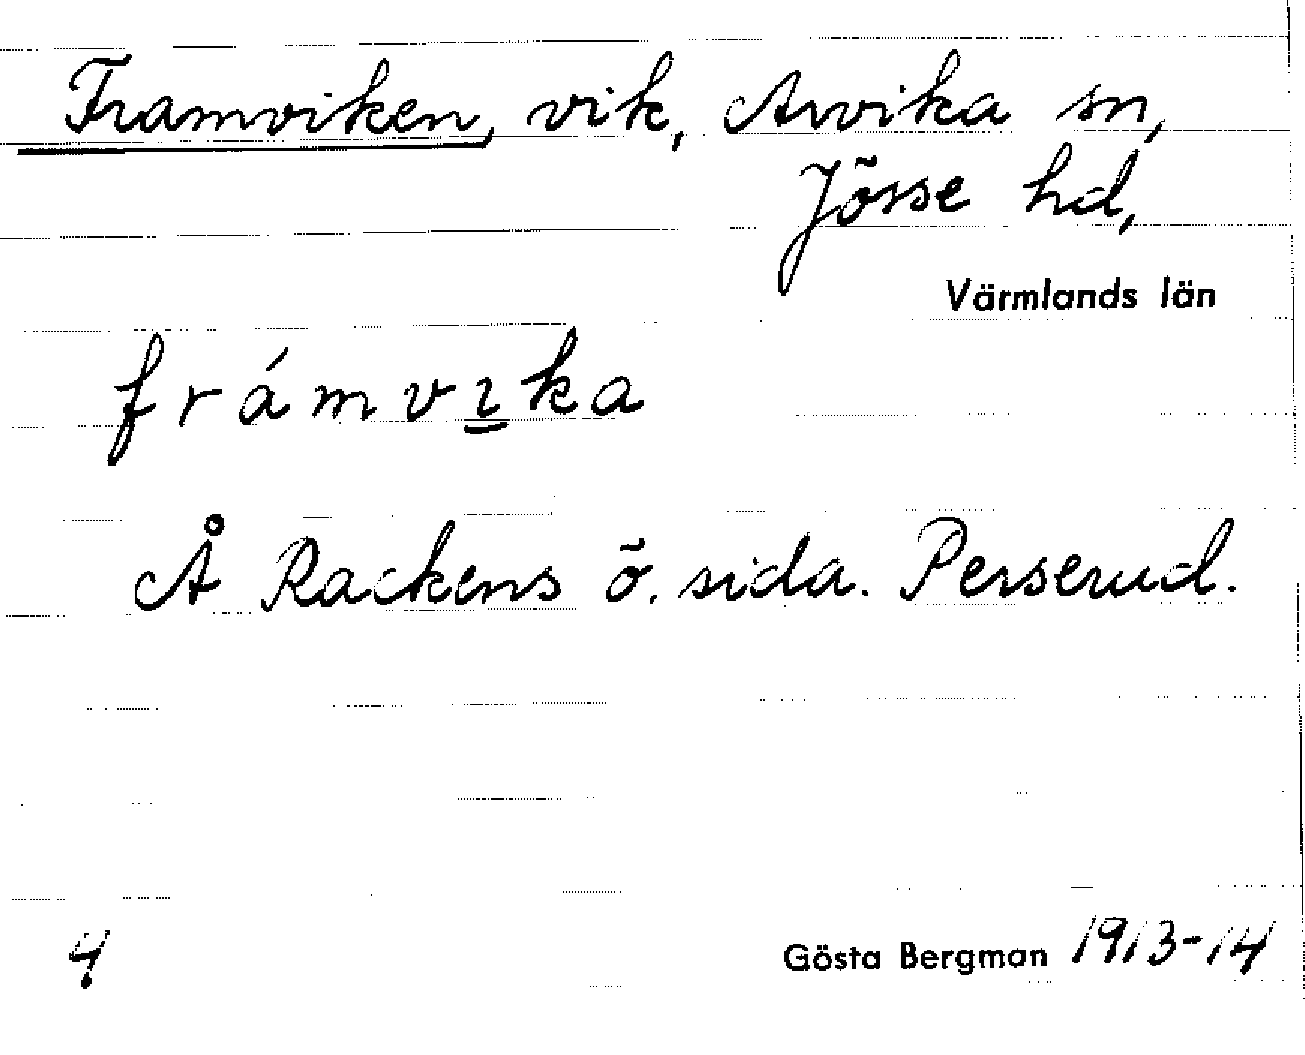 Framviken, vik, Arvika sn,
Jösse hd,
Värmlands län
frámvıka
Å Rackens ö. sida. Perserud.
4
Gösta Bergman 1913-14